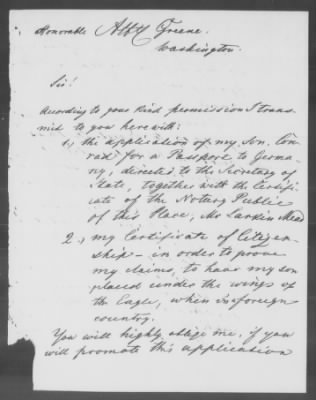 Honorable Alb. C. Greene.
Washington.
Sir!
According to your kind permission I trans-
mit to you herewith:
1., the application of my Son, Con-
rad for a Passport to Germa-
ny, directed to the Secretary of
State, together with the Certifi-
cate of the Notary Public
of this Place, Mr Larkin Mead
2., my Certificate of Citizen-
ship - in order to prove
my claims, to have my son
placed under the wings of
the Eagle, when in a foreign
country.
You will highly oblige me, if you
will promote this application